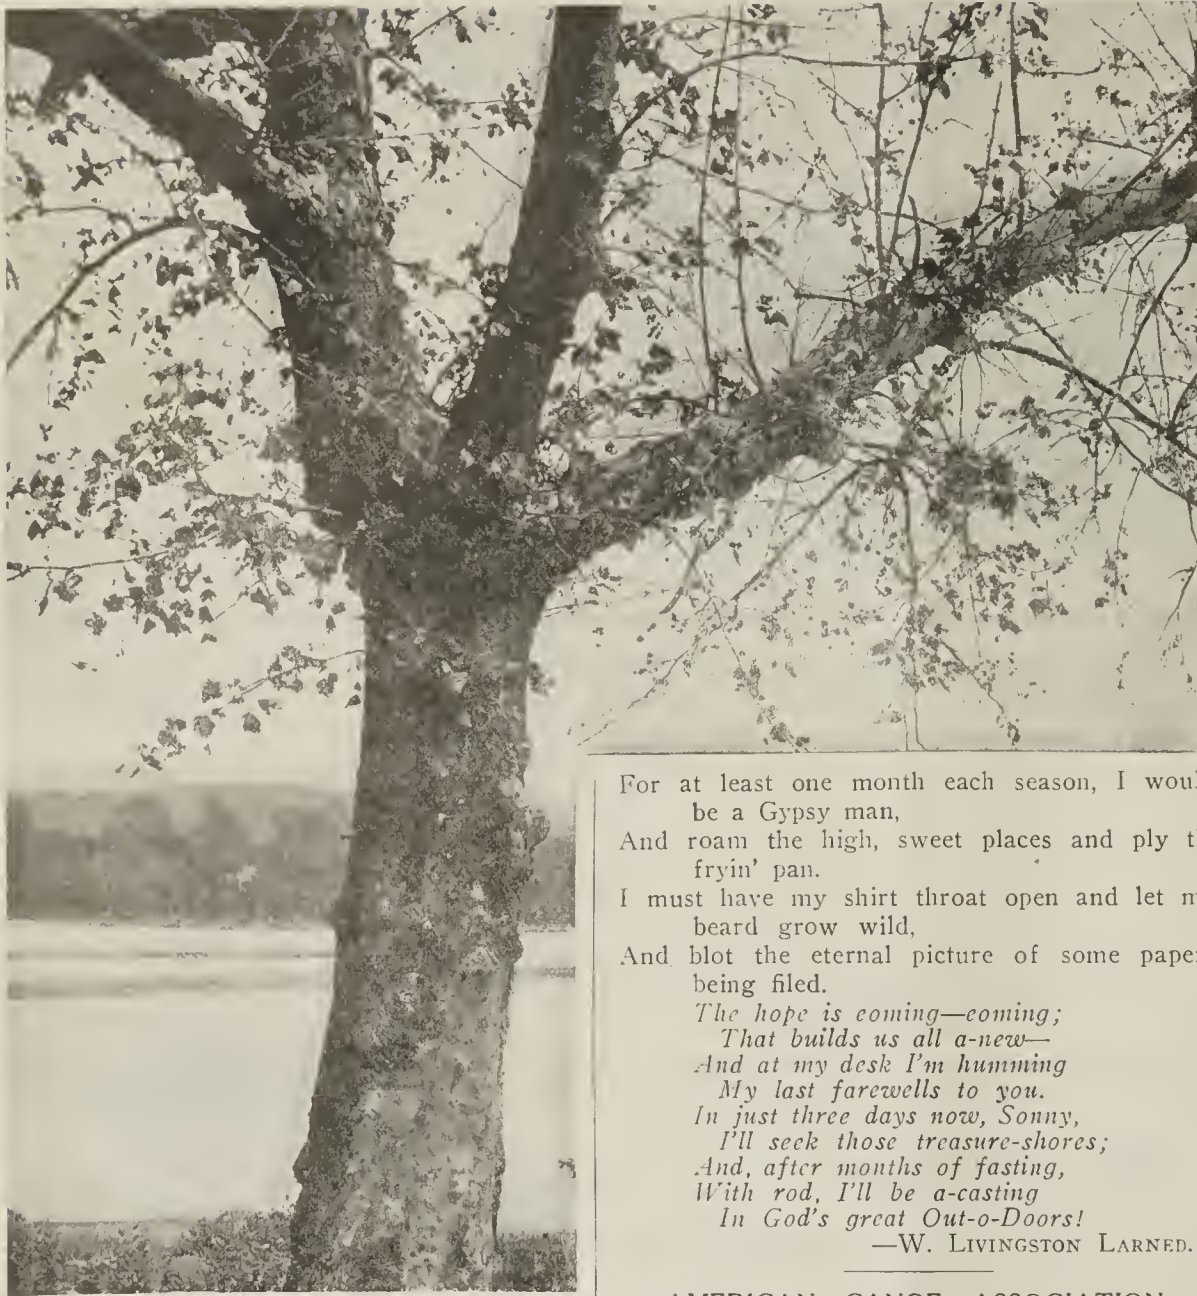 For at least one month each season, I woul
be a Gypsy man,
And roam the high, sweet places and ply t
fryin' pan.
I must have my shirt throat open and let m
beard grow wild,
And blot the eternal picture of some paper
being filed.
The hope is coming—coming;
That builds us all a-new—
And at my desk I'm humming
My last farewells to you.
In just three days now, Sonny,
I'll seek those treasure-shores;
And, after months of fasting,
With rod, I'll be a-casting
In God's great Out-o-Doors!
—W. LIVINGSTON LARNED.
AMERICAN CANOE ASSOCIATION